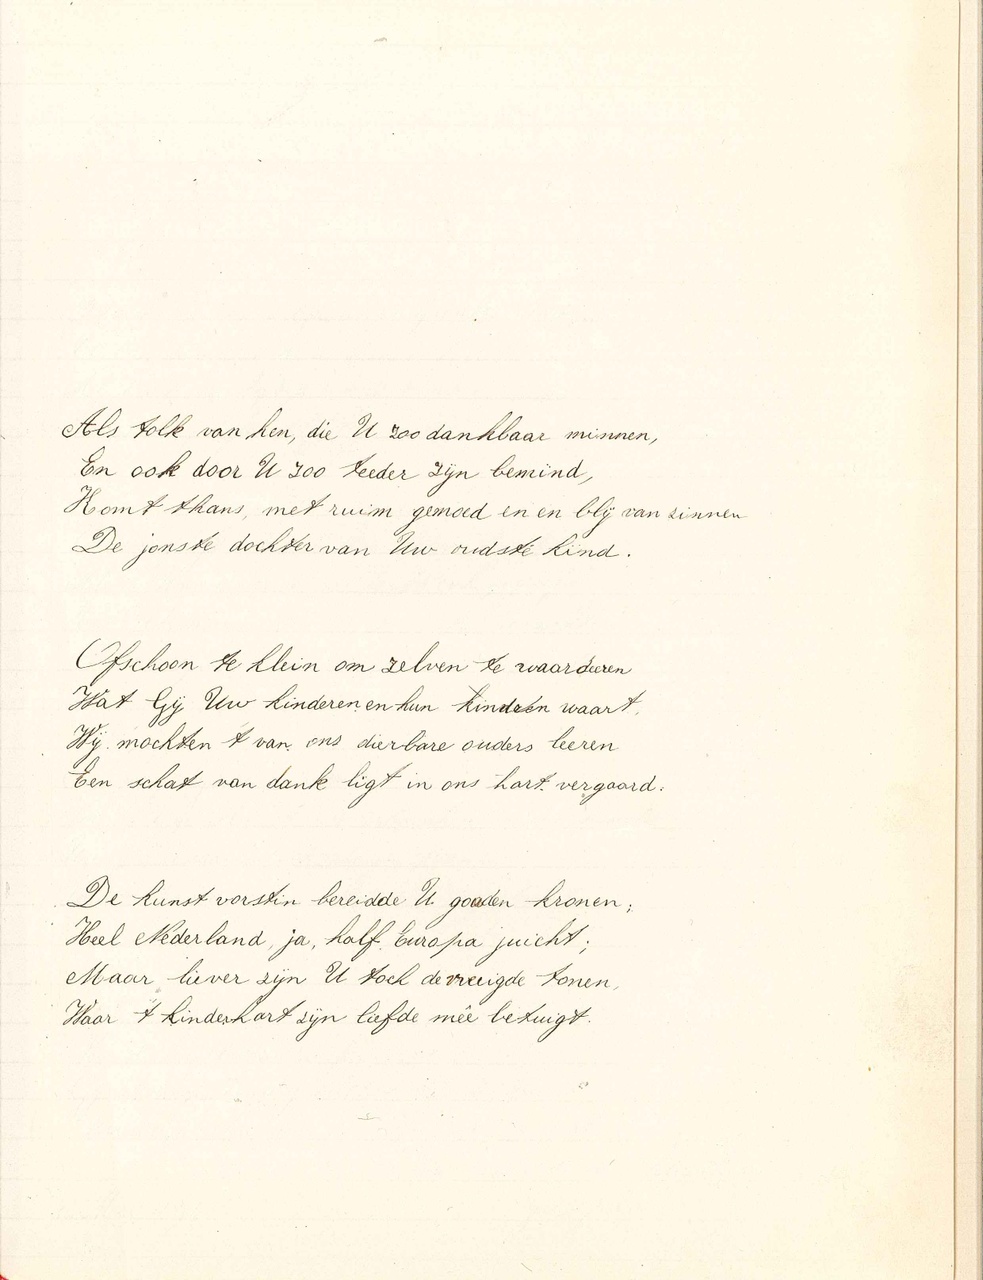 Als tolk van hen, die U zoo dankbaar minnen,
En ook door U zoo teeder zijn bemind,
Komt thans, met ruim gemoed en en blij van zinnen
De jonste dochter van Uw oudste kind.
Ofschoon te klein om zelven te waardeeren
Wat Gij Uw kinderen en hun kindrén waart,
Wij mochten t van ons dierbare ouders leeren
Een schat van dank ligt in ons hart vergaard.
De kunst vorstin bereidde U gouden kronen;
Heel Nederland, ja, half Europa juicht;
Maar liever zijn U toch de vreugde tonen,
Waar 't kinderhart zijn liefde mêe betuigt.